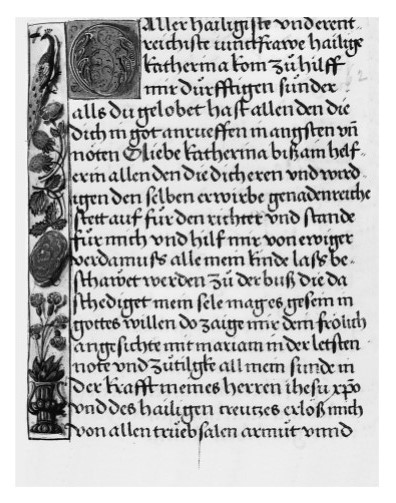 O Aller hailigiste vnd erent-
reichiste iunckfrawe hailige
katherina kom zů hilff
mir dürfftigen sünder
alls du gelobet hast allen den die
dich in got anrueffen in angsten vn̄
nöten O liebe katherina biß ain helf-
erin allen den die dich eren vnd wird
igen den selben erwirbe genadenreiche
stett auf für den richter vnd stande
für mich vnd hilf mir von ewiger
verdamuss alle mein sünde lass be-
schawet werden zů der büß die da
schediget mein sele mag es gesein in
gottes willen do zaige mir dein frölich
angesichte mit mariam in der letsten
note vnd zůtilgke all mein sünde in
der krafft meines herren ihesu xp̄o
vnd des hailigen creutzes erlöß mich
von allen trüebsalen armut vnnd